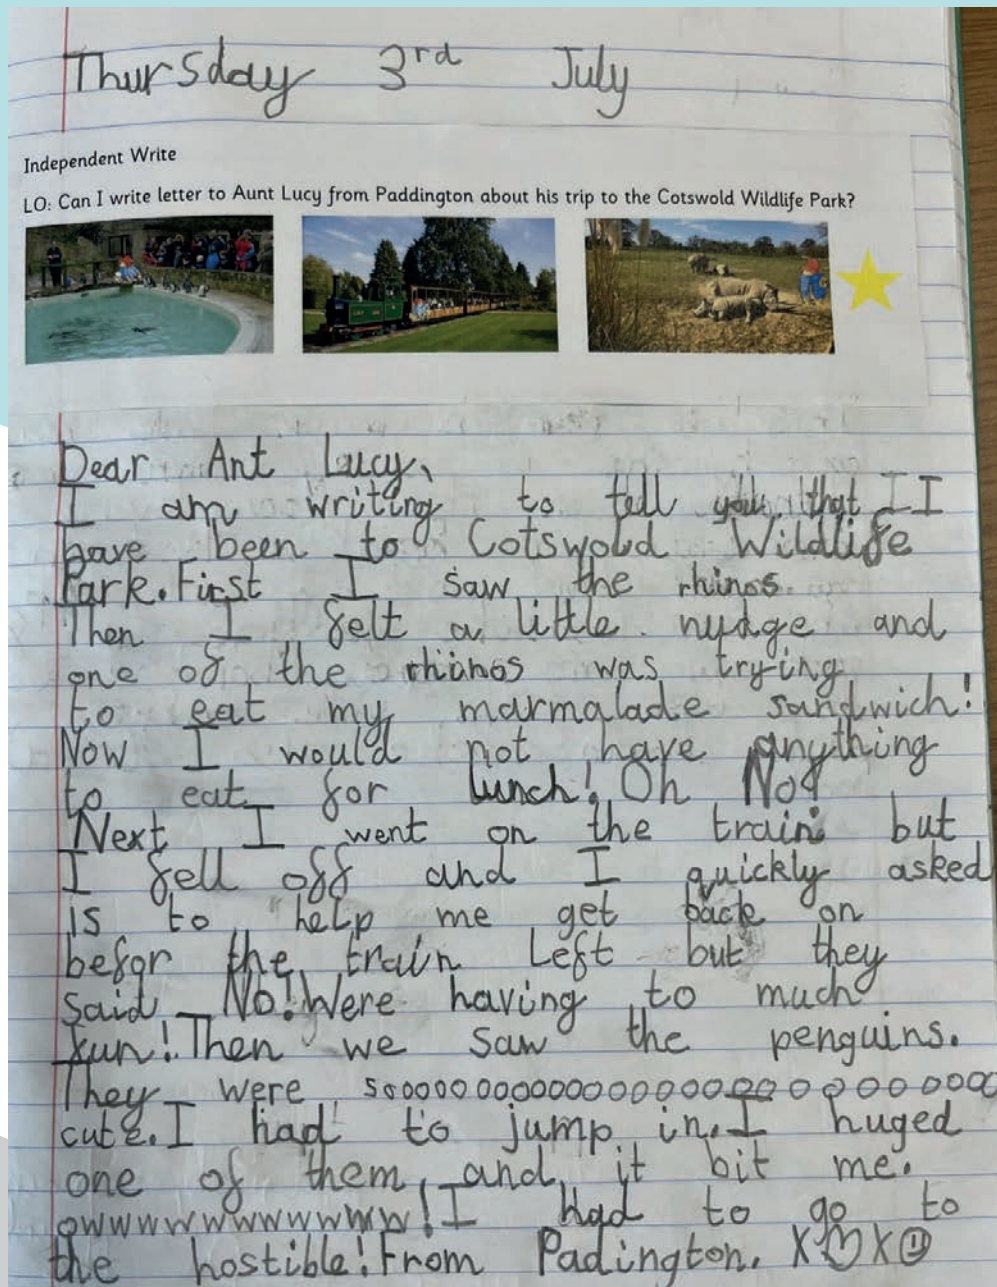 Thursday 3rd July
Independent Write
LO: Can I write letter to Aunt Lucy from Paddington about his trip to the Cotswold Wildlife Park?
Dear Ant Lucy,
I am writing to tell you that I I
have been to Cotswold Wildlife
Park. First I saw the rhinos.
Then I felt a little nudge and
one of the rhinos was trying
to eat my marmalade sandwich!
Now I would not have anything
to eat for lunch! Oh No!
Next I went on the train but
I fell off and I quickly asked
is to help me get back on
befor the train left but they
said No! Were having to much
fun! Then we saw the penguins.
They were soooooooooooooooooooooooooo
cute. I had to jump in. I huged
one of them and it bit me.
owwwwwwwwwwww! I had to go to
the hostible! From Padington. X♡X☺